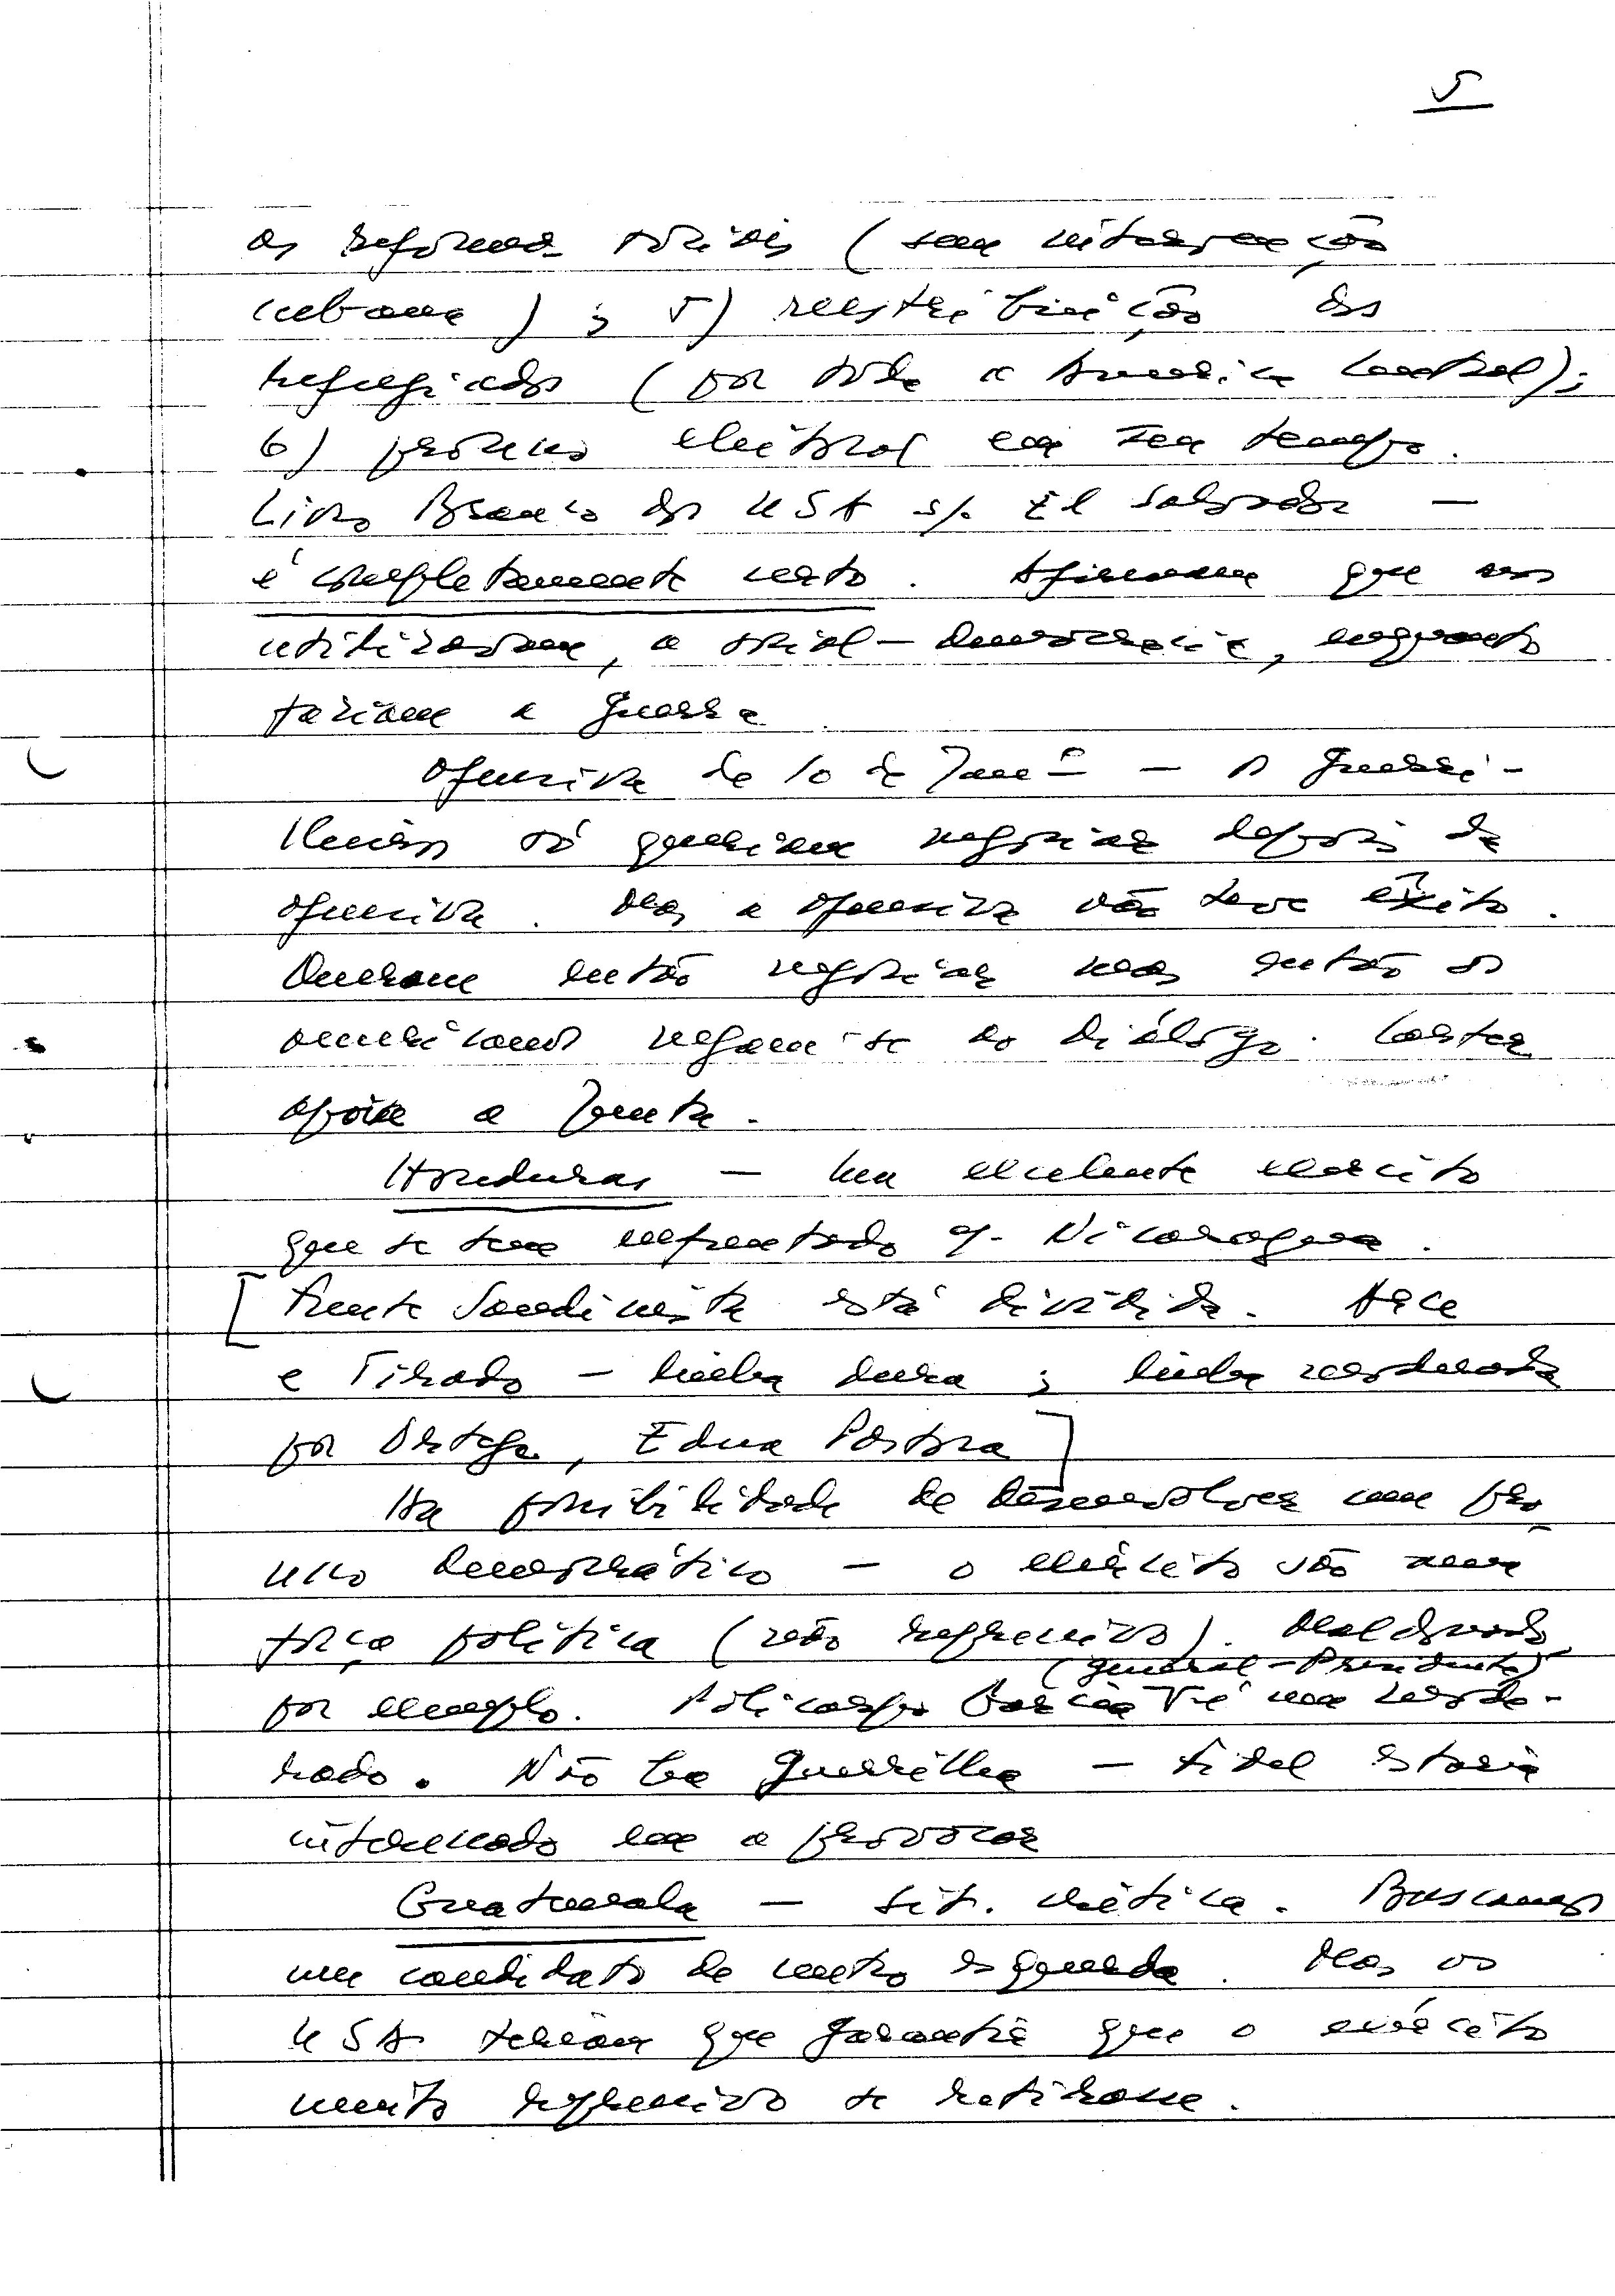 5
as reformas sociais (sem intervenção
cubana) ; 5) redistribuição dos
refugiados (por toda a America Central);
6) processo eleitoral em seu tempo.
Livro Branco dos USA s/. El Salvador —
é completamente certo. Afirmam que nos
utilizaram, a social-democracia, enquanto
faziam a guerra
Ofensiva de 10 de Janº — Os guerri-
lheiros só queriam negociar depois da
ofensiva. Mas a ofensiva não teve êxito.
Queriam então negociar mas então os
americanos negam-se ao diálogo. Carter
apoia a Junta.
Honduras — Um excelente exército
que se tem enfrentado c/. Nicaragua.
[Frente Sandinista está dividida. Arce
e Tirado — linha dura ; linha moderada
por Ortega, Eden Pastora]
Ha possibilidade de desenvolver um pro-
cesso democrático — o exército são uma
força política (não repressivo). Maldonado
(general-Presidente)
por exemplo. Policarpo Paz é um mode-
rado. Não ha guerrilha — Fidel estaria
interessado em a provocar
Guatemala — Sit. crítica. Buscamos
um candidato de centro esquerda. Mas os
USA teriam que garantir que o exército
muito repressivo se retirasse.